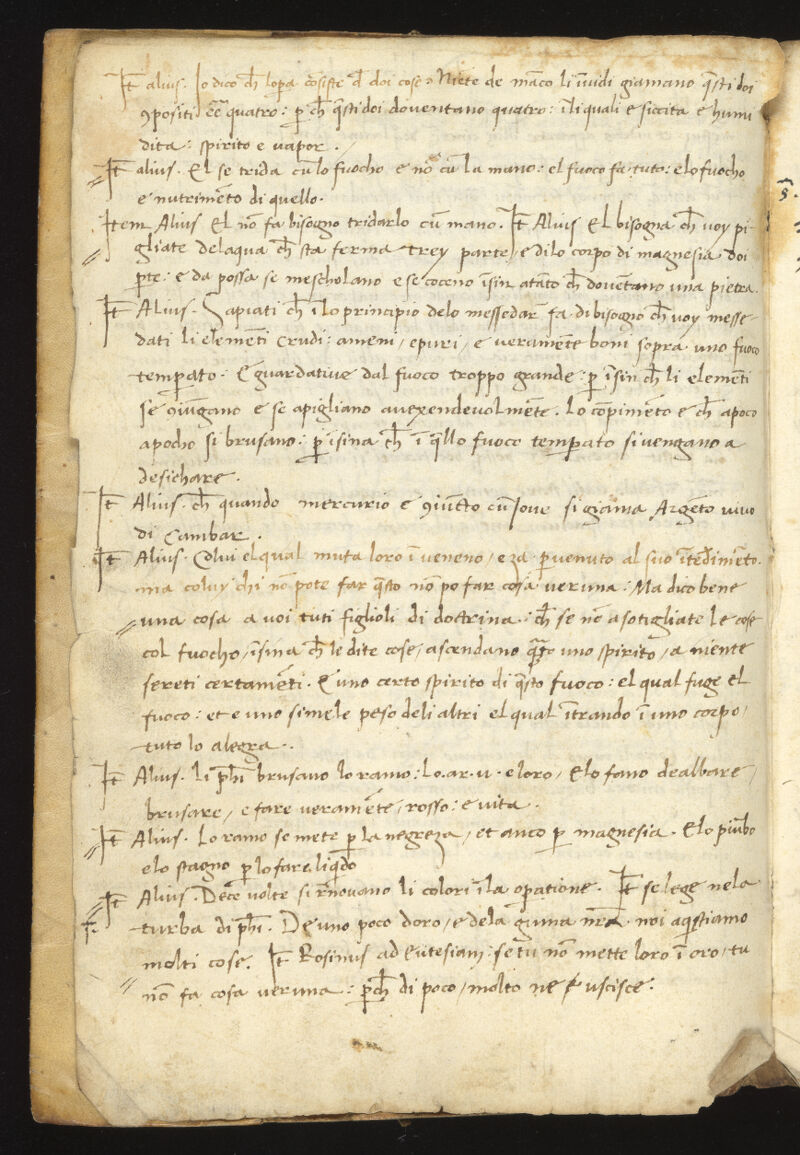 It̄ alius. Io dico ch̄ lopa cōsiste ī doi cose. Niēte de māco li īuidi giamano q̄sti doi
ꝯpositi eē quatro: p ch̄ q̄sti doi doventano quatro: ili quali e siccita e humi
dita: spirito e vapor.
It̄ alius. El se trida cū lo fuocho e nō cū la mano: el fuoco fa tuto: e lo fuocho
e nutrimēto di quello.
Item Alius El nō fa bisogno tridarlo cū mano. It̄ Alius El bisogna ch̄ voy pi-
gliate delaqua ch̄ sta ferma trey parte / e dilo corpo di magnesia doi
pte: e da possa se mescholano e se coceno īsin atāto ch̄ doventano una pietra.
It̄ Alius. Sapiati ch̄ ī lo principio delo messedar fa dibisogno ch̄ voy messe-
dati li elemēti crudi: ameni / epuri / e veramēte boni sopra uno fuoco
tempato. E guardative dal fuoco troppo grande: p īsin ch̄ li elemēti
se ꝯiūgano e se apigliano avexendevolmēte. Lo cōpimēto e ch̄ apoco
apocho si brusano: p isina ch̄ ī q̄llo fuoco tempato si vengano a
desichare.
It̄ Alius. ch̄ quando mercurio e ꝯiūtto cū Iove si giama Argēto vivo
di Cambar.
It̄ Alius. Colui el qual muta loro ī veneno / e za pvenuto al suo ītēdimēto.
ma coluy chi nō pote far q̄sto nō po far cosa veruna: Ma dico bene
una cosa a voi tuti figlioli di doctrina: ch̄ se nō asotigliate le cose
col fuocho / īsina ch̄ le dite cose / ascendano q̄to uno spirito / a niente
sereti certamēti. E uno certo spirito di q̄sto fuoco: el qual fuge el
fuoco: et e uno simele peso deli altri el qual ītrando ī uno corpo /
tuto lo alegra.
It̄ Alius. li phi brusano lo ramo: Lo. ar. u. e loro / E lo fano dealbare /
brusare / e fare veramēte / rosso: e vita.
It̄ Alius. Lo ramo se mete p la negreza / et anco p magnesia. E lo piūbo
e lo stagno p lo fare liq̄do
It̄ Alius. Dece volte si rīnovano li colori ī la opatione. It̄ se lege ne la
turba di phi. De uno poco doro / e dela guma nr̄a noi aq̄stiamo
molti cose. It̄ Rosinus ad Eutesiam: se tu nō mette loro ī oro / tu
nō fa cosa veruna: pch̄ di poco / molto ne uscisce.